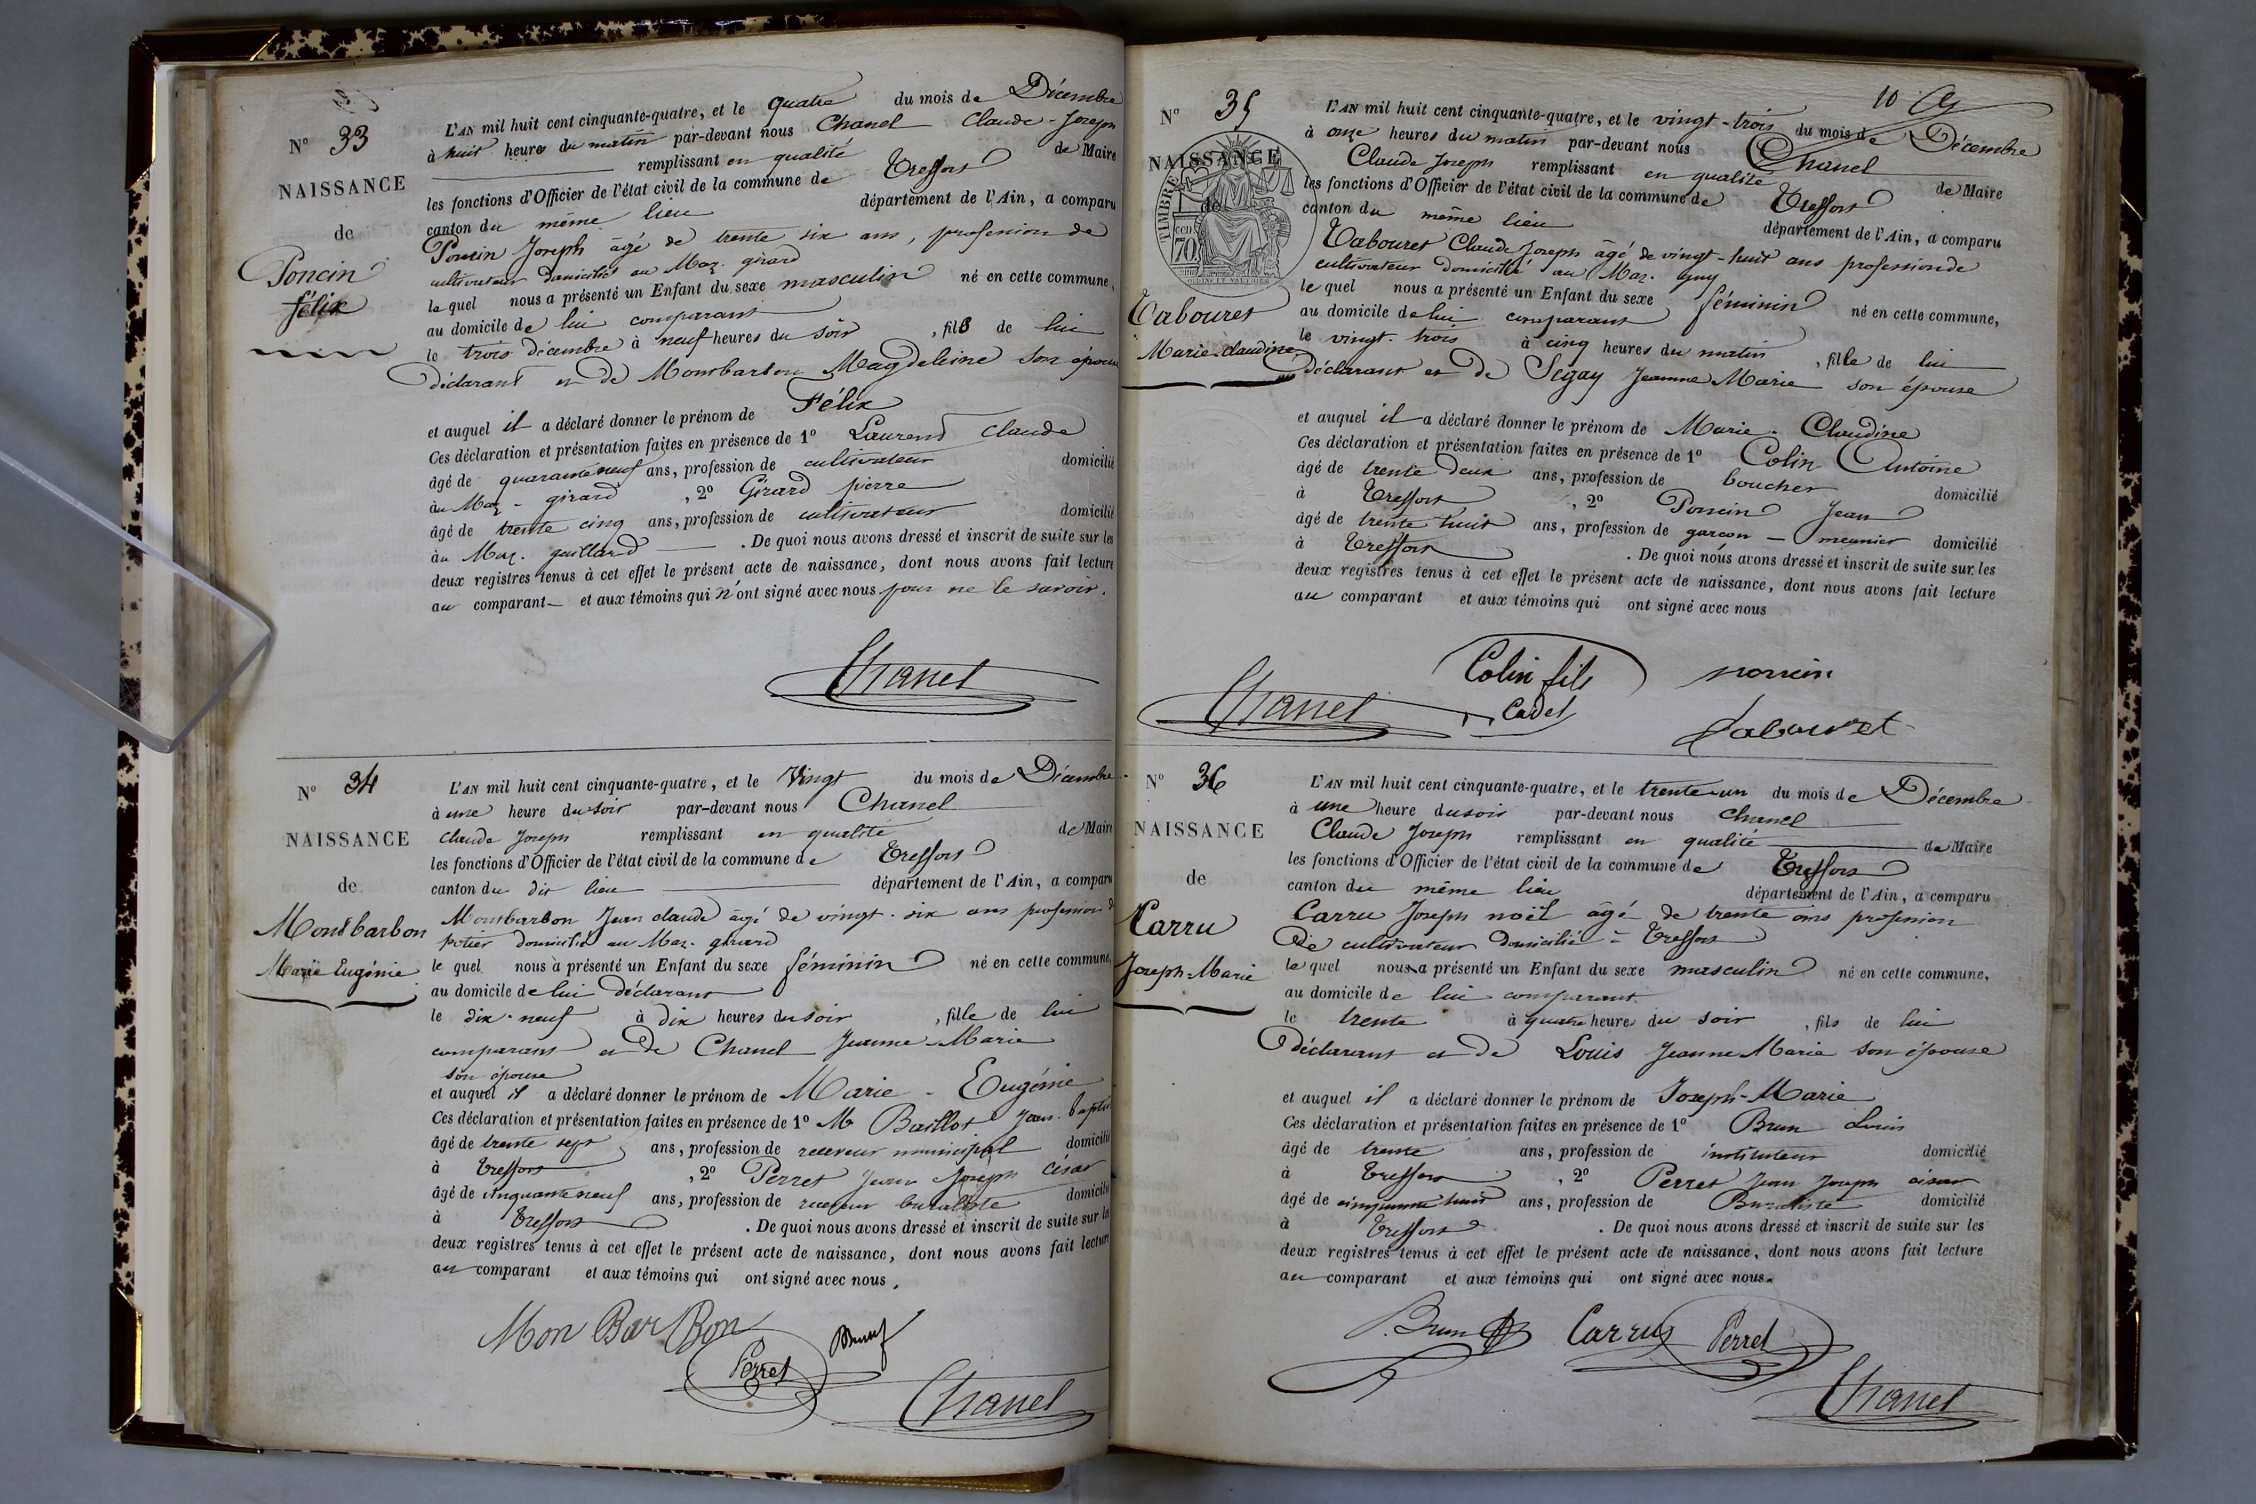 N° 33
NAISSANCE
de
Poncin
félix
L'AN mil huit cent cinquante-quatre, et le quatre du mois de Décembre
à huit heures du matin par-devant nous Chanel Claude-Joseph
remplissant en qualité de Maire
les fonctions d'Officier de l'état civil de la commune de Treffort
canton du même lieu département de l'Ain, a comparu
Poncin Joseph âgé de trente six ans, profession de
cultivateur domicilié au Maz. girard
le quel nous a présenté un Enfant du sexe masculin né en cette commune,
au domicile de lui comparant
le trois décembre à neuf heures du soir, fils de lui
déclarant et de Montbarbon Magdeleine son épouse
et auquel il a déclaré donner le prénom de Félix
Ces déclaration et présentation faites en présence de 1° Laurend Claude
âgé de quarante neuf ans, profession de cultivateur domicilié
au Maz - girard, 2° Girard pierre
âgé de trente cinq ans, profession de cultivateur domicilié
au Maz. guillard. De quoi nous avons dressé et inscrit de suite sur les
deux registres tenus à cet effet le présent acte de naissance, dont nous avons fait lecture
au comparant et aux témoins qui n'ont signé avec nous pour ne le savoir.
Chanel
N° 34
NAISSANCE
de
Montbarbon
Marie Eugénie
L'AN mil huit cent cinquante-quatre, et le Vingt du mois de Décembre
à une heure du soir par-devant nous Chanel
Claude Joseph remplissant en qualité de Maire
les fonctions d'Officier de l'état civil de la commune de Treffort
canton du dit lieu département de l'Ain, a comparu
Montbarbon Jean claude âgé de vingt-six ans profession de
potier domicilié au Maz. girard
le quel nous a présenté un Enfant du sexe féminin né en cette commune,
au domicile de lui déclarant
le dix-neuf à dix heures du soir, fille de lui
comparant et de Chanel Jeanne-Marie
son épouse
et auquel il a déclaré donner le prénom de Marie-Eugénie
Ces déclaration et présentation faites en présence de 1° Mr Baillot Jean-baptiste
âgé de trente sept ans, profession de receveur municipal domicilié
à Treffort, 2° Perret Jean Joseph César
âgé de cinquante neuf ans, profession de receveur buraliste domicilié
à Treffort. De quoi nous avons dressé et inscrit de suite sur les
deux registres tenus à cet effet le présent acte de naissance, dont nous avons fait lecture
au comparant et aux témoins qui ont signé avec nous.
Mon Bar Bon
Perret
Chanel
10
N° 35
NAISSANCE
de
TIMBRE
70
Tabouret
Marie-claudine
L'AN mil huit cent cinquante-quatre, et le vingt-trois du mois de Décembre
à onze heures du matin par-devant nous Chanel
Claude Joseph remplissant en qualité de Maire
les fonctions d'Officier de l'état civil de la commune de Treffort
canton du même lieu département de l'Ain, a comparu
Tabouret Claude Joseph âgé de vingt-huit ans profession de
cultivateur domicilié au Maz. guy
le quel nous a présenté un Enfant du sexe féminin né en cette commune,
au domicile de lui comparant
le vingt-trois à cinq heures du matin, fille de lui
déclarant et de Segay Jeanne Marie son épouse
et auquel il a déclaré donner le prénom de Marie-Claudine
Ces déclaration et présentation faites en présence de 1° Colin Antoine
âgé de trente deux ans, profession de boucher domicilié
à Treffort, 2° Poncin Jean
âgé de trente huit ans, profession de garçon - meunier domicilié
à Treffort. De quoi nous avons dressé et inscrit de suite sur les
deux registres tenus à cet effet le présent acte de naissance, dont nous avons fait lecture
au comparant et aux témoins qui ont signé avec nous
Chanel
Colin fils
Cadet
poncin
Tabouret
N° 36
NAISSANCE
de
Carru
Joseph-Marie
L'AN mil huit cent cinquante-quatre, et le trente-un du mois de Décembre
à une heure du soir par-devant nous Chanel
Claude Joseph remplissant en qualité de Maire
les fonctions d'Officier de l'état civil de la commune de Treffort
canton du même lieu département de l'Ain, a comparu
Carru Joseph noël âgé de trente ans profession
de cultivateur domicilié à Treffort
le quel nous a présenté un Enfant du sexe masculin né en cette commune,
au domicile de lui comparant
le trente à quatre heures du soir, fils de lui
déclarant et de Louis Jeanne Marie son épouse
et auquel il a déclaré donner le prénom de Joseph-Marie
Ces déclaration et présentation faites en présence de 1° Brun Louis
âgé de trente ans, profession de instituteur domicilié
à Treffort, 2° Perret Jean Joseph césar
âgé de cinquante huit ans, profession de Buraliste domicilié
à Treffort. De quoi nous avons dressé et inscrit de suite sur les
deux registres tenus à cet effet le présent acte de naissance, dont nous avons fait lecture
au comparant et aux témoins qui ont signé avec nous.
Brun
Carru
Perret
Chanel